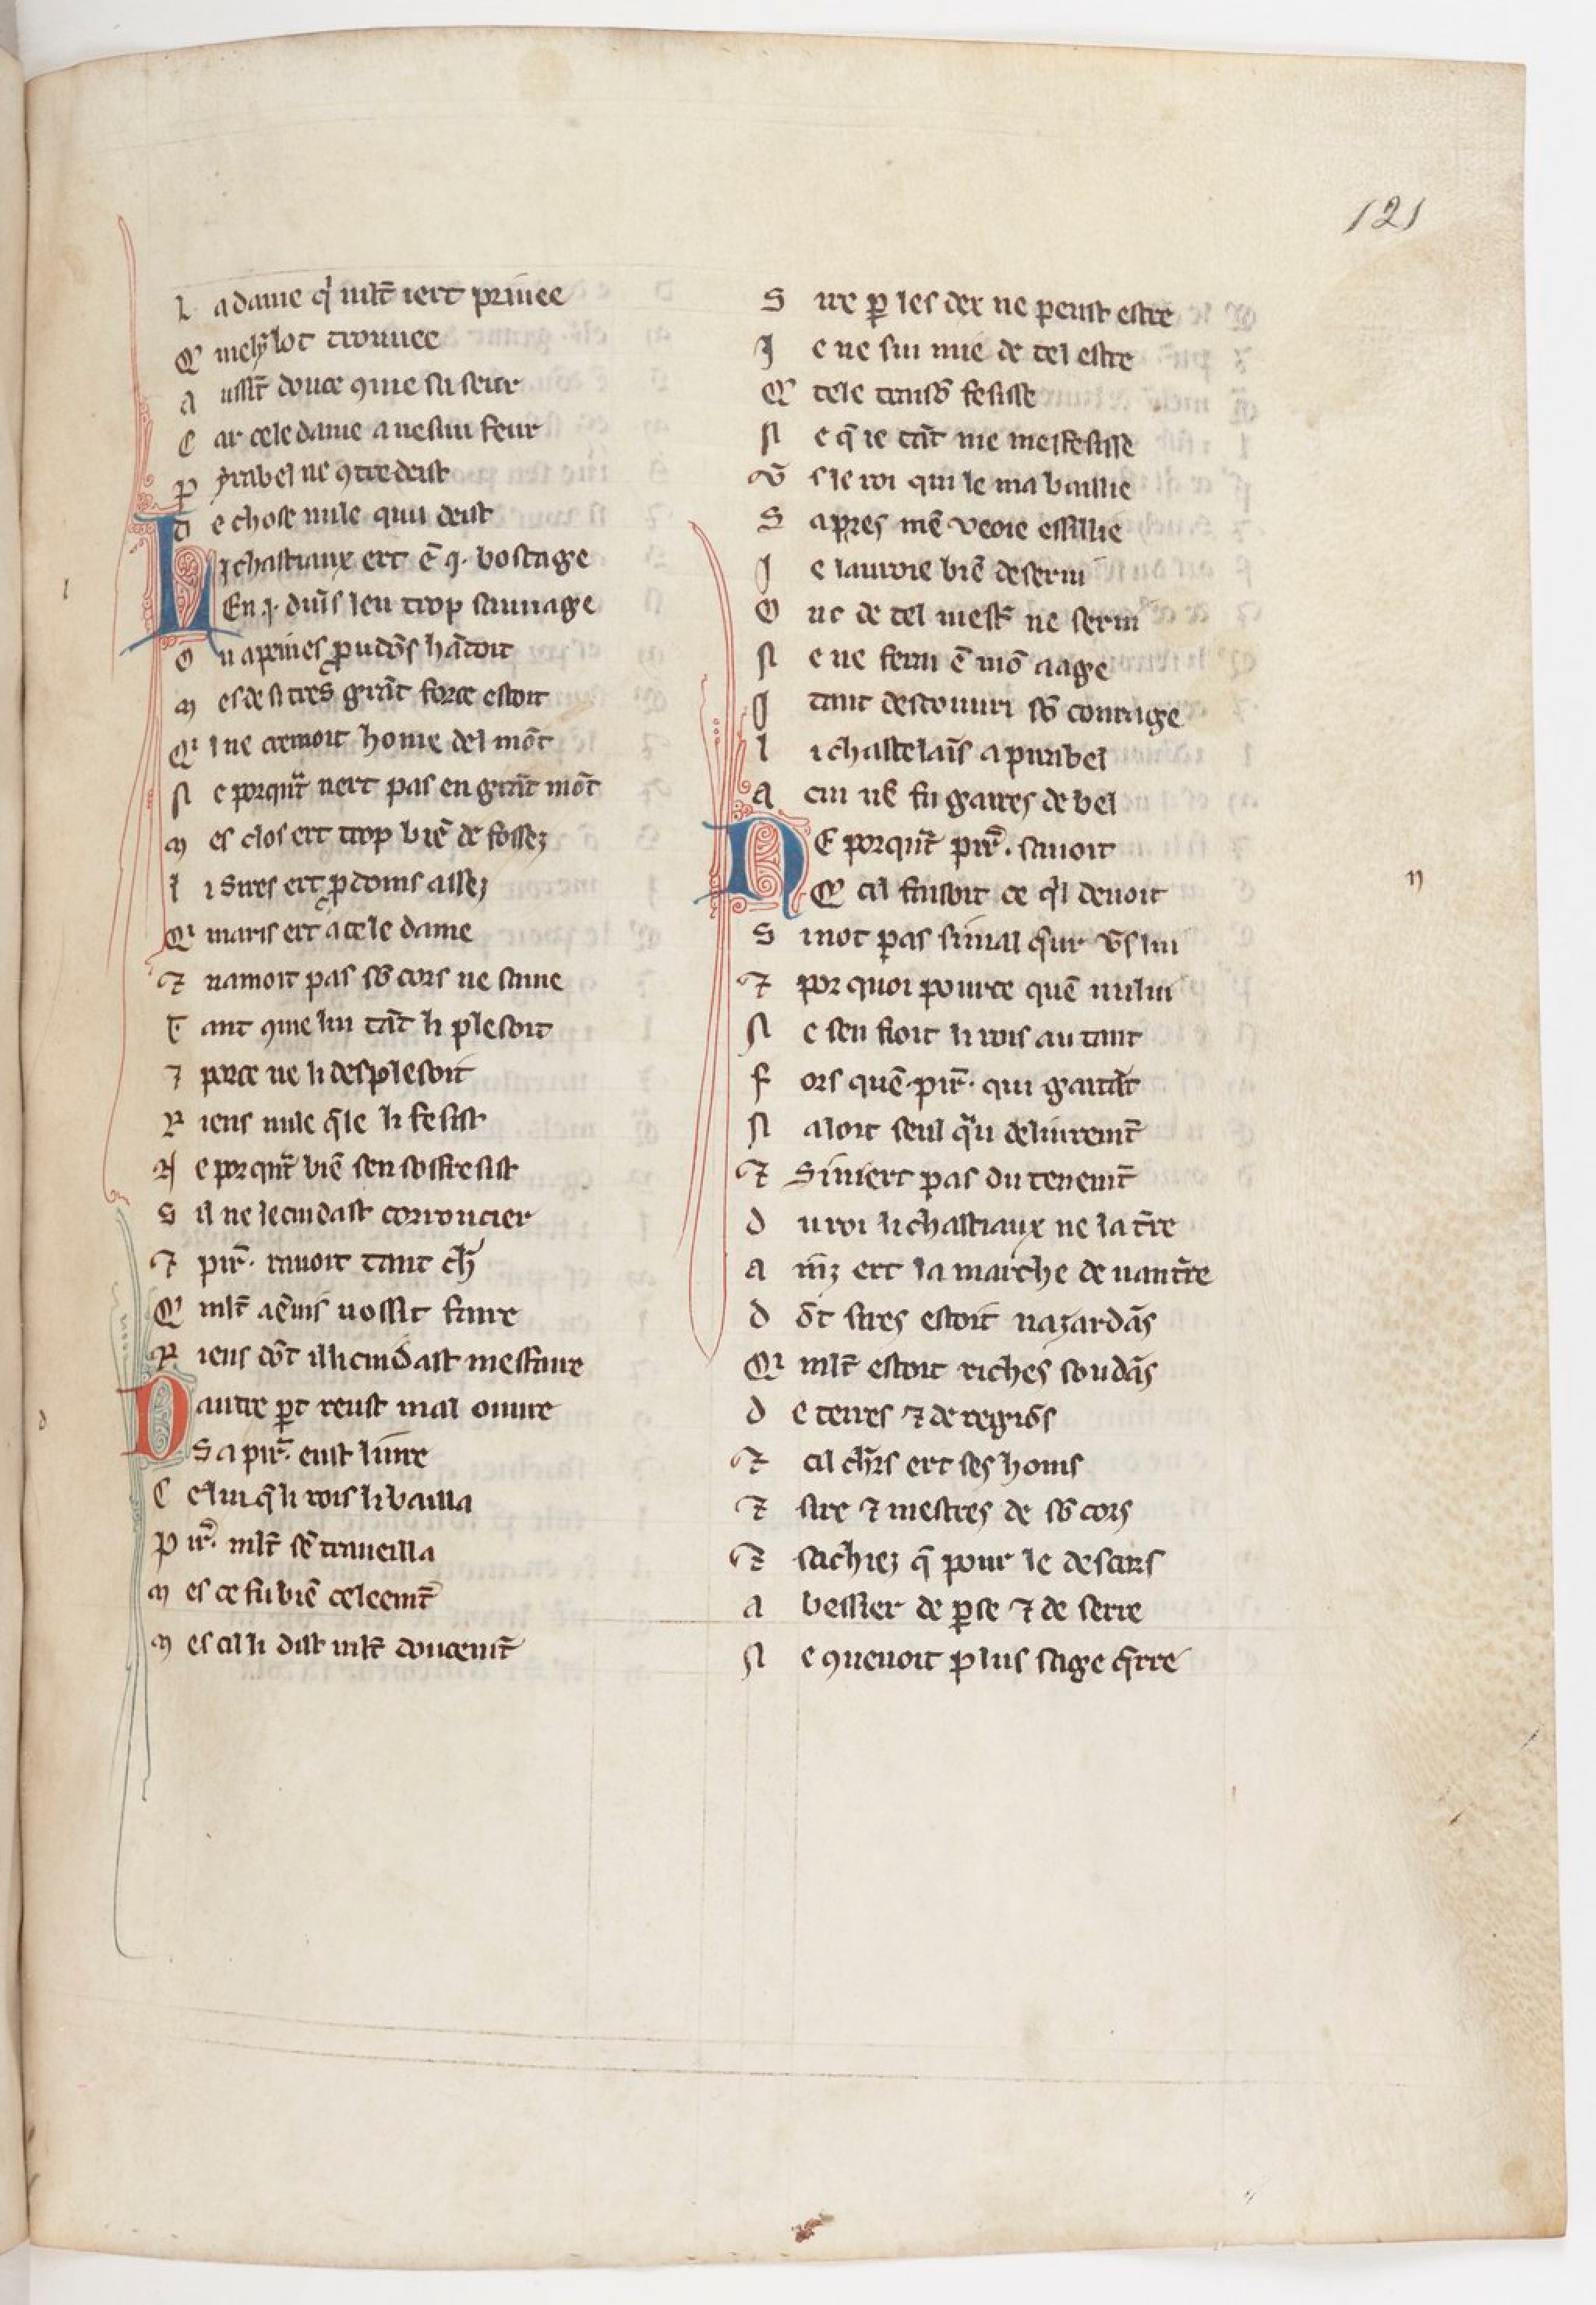 121
L a dame q̇ mlt̄ iert priuee
Q' melẏlot trouuee
A usſt̄ douce ꝯme ſa ſeur
C ar cele dame a neſun feur
P ẏrabel ne ꝯtredeiſt
D e choſe nule quil deiſt
Li chaſtiaux ert ē .j. boſcage
En .j. duiſ leu trop ſauuage
O u apeines ꝓudōſ hātoit
M es de ſi tres grāt force eſtoit
Q' l ne cremoit home del mōt
N e porquāt nert pas en grāt mōt
M es clos ert trop biē de foſſez
L i Sires ert ꝓdoms aſſez
Q' maris ert a cele dame
⁊ namoit pas ſō cors ne ſame
T ant ꝯme lui tāt li pleſoit
⁊ porce ne li deſpleſoit
R iens nule q̄le li feſiſt
N e porquāt biē ſen ſoffreſiſt
S il ne le cuidaſt corroucier
⁊ pir̄. rauoit tant ch̄
Q' mlt̄ aēuis uoſſiſt faire
R iens dōt il li cuidaſt meſfaire
Dautre ꝑt reuſt mal ouure
S a pir̄. euſt liure
C elui q̄ li rois li bailla
P ir̄. mlt̄ ſē traueilla
M es ce fu biē celeemt̄
M es cil li diſt mlt̄ doucemt̄
S ire ꝑ les dex ne peuſt eſtre
J e ne ſui mie de tel eſtre
Q' tele traiſō feſiſſe
N e q̄ ie tāt me meſfeſiſſe
V̄ s le roi qui le ma baillie
S apres mē veoie eſſillie
J e lauroie biē deſerui
O nc de tel meſt̄ ne ſerui
N e ne ferai ē mō aage
J tant deſcouuri ſō courage
L i chaſtelaīs a pirabel
A cui nē fu gaires de bel
NE porquāt pir̄. ſauoit
Q' cil faiſoit ce q̇l deuoit
S i not pas ſi mal cuer v̄s lui
⁊ por quoi pource quē nului
N e ſen fioit li rois autant
F ors quē pir̄. qui gaitāt
N aloit ſeul q̇a deliuremt̄
⁊ Si niert pas du tenemt̄
D u roi li chaſtiaux ne la t̄re
A inz ert la marche de nant̄re
D ōt ſires eſtoit nazardās
Q' mlt̄ eſtoit riches ſoudās
D e terres ⁊ de regiōs
⁊ cil ch̄rs ert ſes homs
⁊ ſire ⁊ meſtres de ſō cors
⁊ ſachiez q̄ pour le deſcors
A beſſier de ꝑſe ⁊ de ſerre
N e ꝯuenoit plus ſage q̄rre
l
d
n